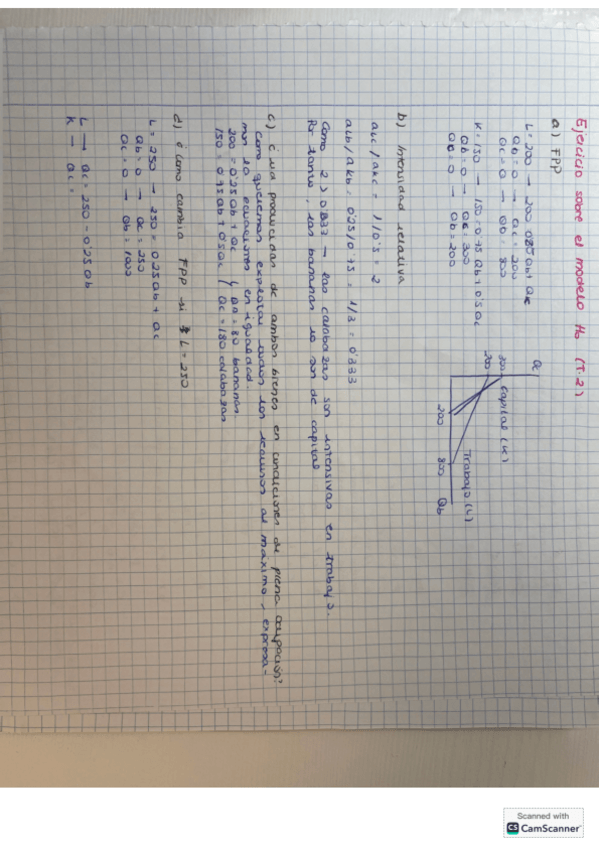 Ejercicio sobre el modelo HO (T.2)
a) FPP
L = 200 → 200 = 0'25 Qb + Qc
Qb = 0 → Qc = 200
Qc = 0 → Qb = 800
K = 150 → 150 = 0'75 Qb + 0'5 Qc
Qb = 0 → Qc = 300
Qc = 0 → Qb = 200
Qc
300
200
Capital (K)
Trabajo (L)
200
800
Qb
b) Intensidad relativa
aLc / aKc = 1 / 0'5 = 2
aLb / aKb = 0'25 / 0'75 = 1/3 = 0'333
Como 2 > 0'333 → las calabazas son intensivas en trabajo.
Por tanto, las bananas lo son de capital
c) ¿ producidas de ambos bienes en condiciones de plena ocupación?
Como queremos expresar los recursos al máximo, expresa-
mos la ecuaciones en igualdad.
200 = 0'25 Qb + Qc
150 = 0'75 Qb + 0'5 Qc
Qb = 80 bananas
Qc = 180 calabazas
d) ¿ Cómo cambia FPP si L = 250
L = 250 → 250 = 0'25 Qb + Qc
Qb = 0 → Qc = 250
Qc = 0 → Qb = 1000
L → Qc = 250 - 0'25 Qb
K → Qc =
Scanned with
CS CamScanner